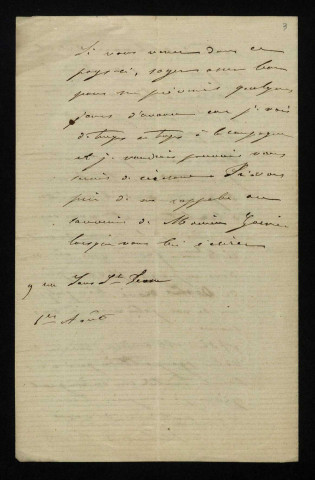 3
Si vous venez dans ce
pays-ci, soyez assez bon
pour me prévenir quelques
jours d'avance car je vais
de temps en temps à la campagne
et je voudrais pouvoir vous
servir de cicerone. Je vous
prie de me rappeler au
souvenir de Monsieur
lorsque vous lui écrirez
9 rue
1er Août